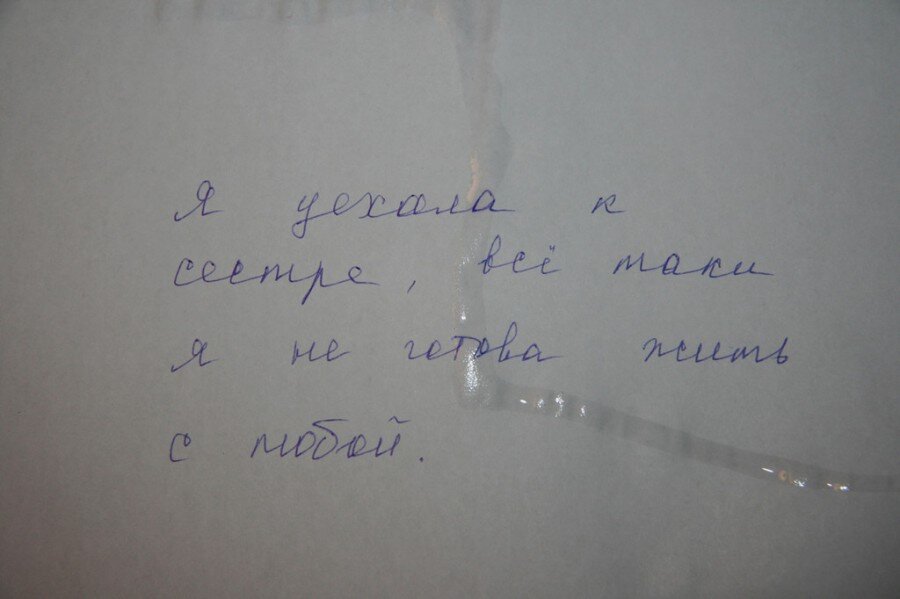 Я уехала к
сестре, всё таки
я не готова жить
с тобой.